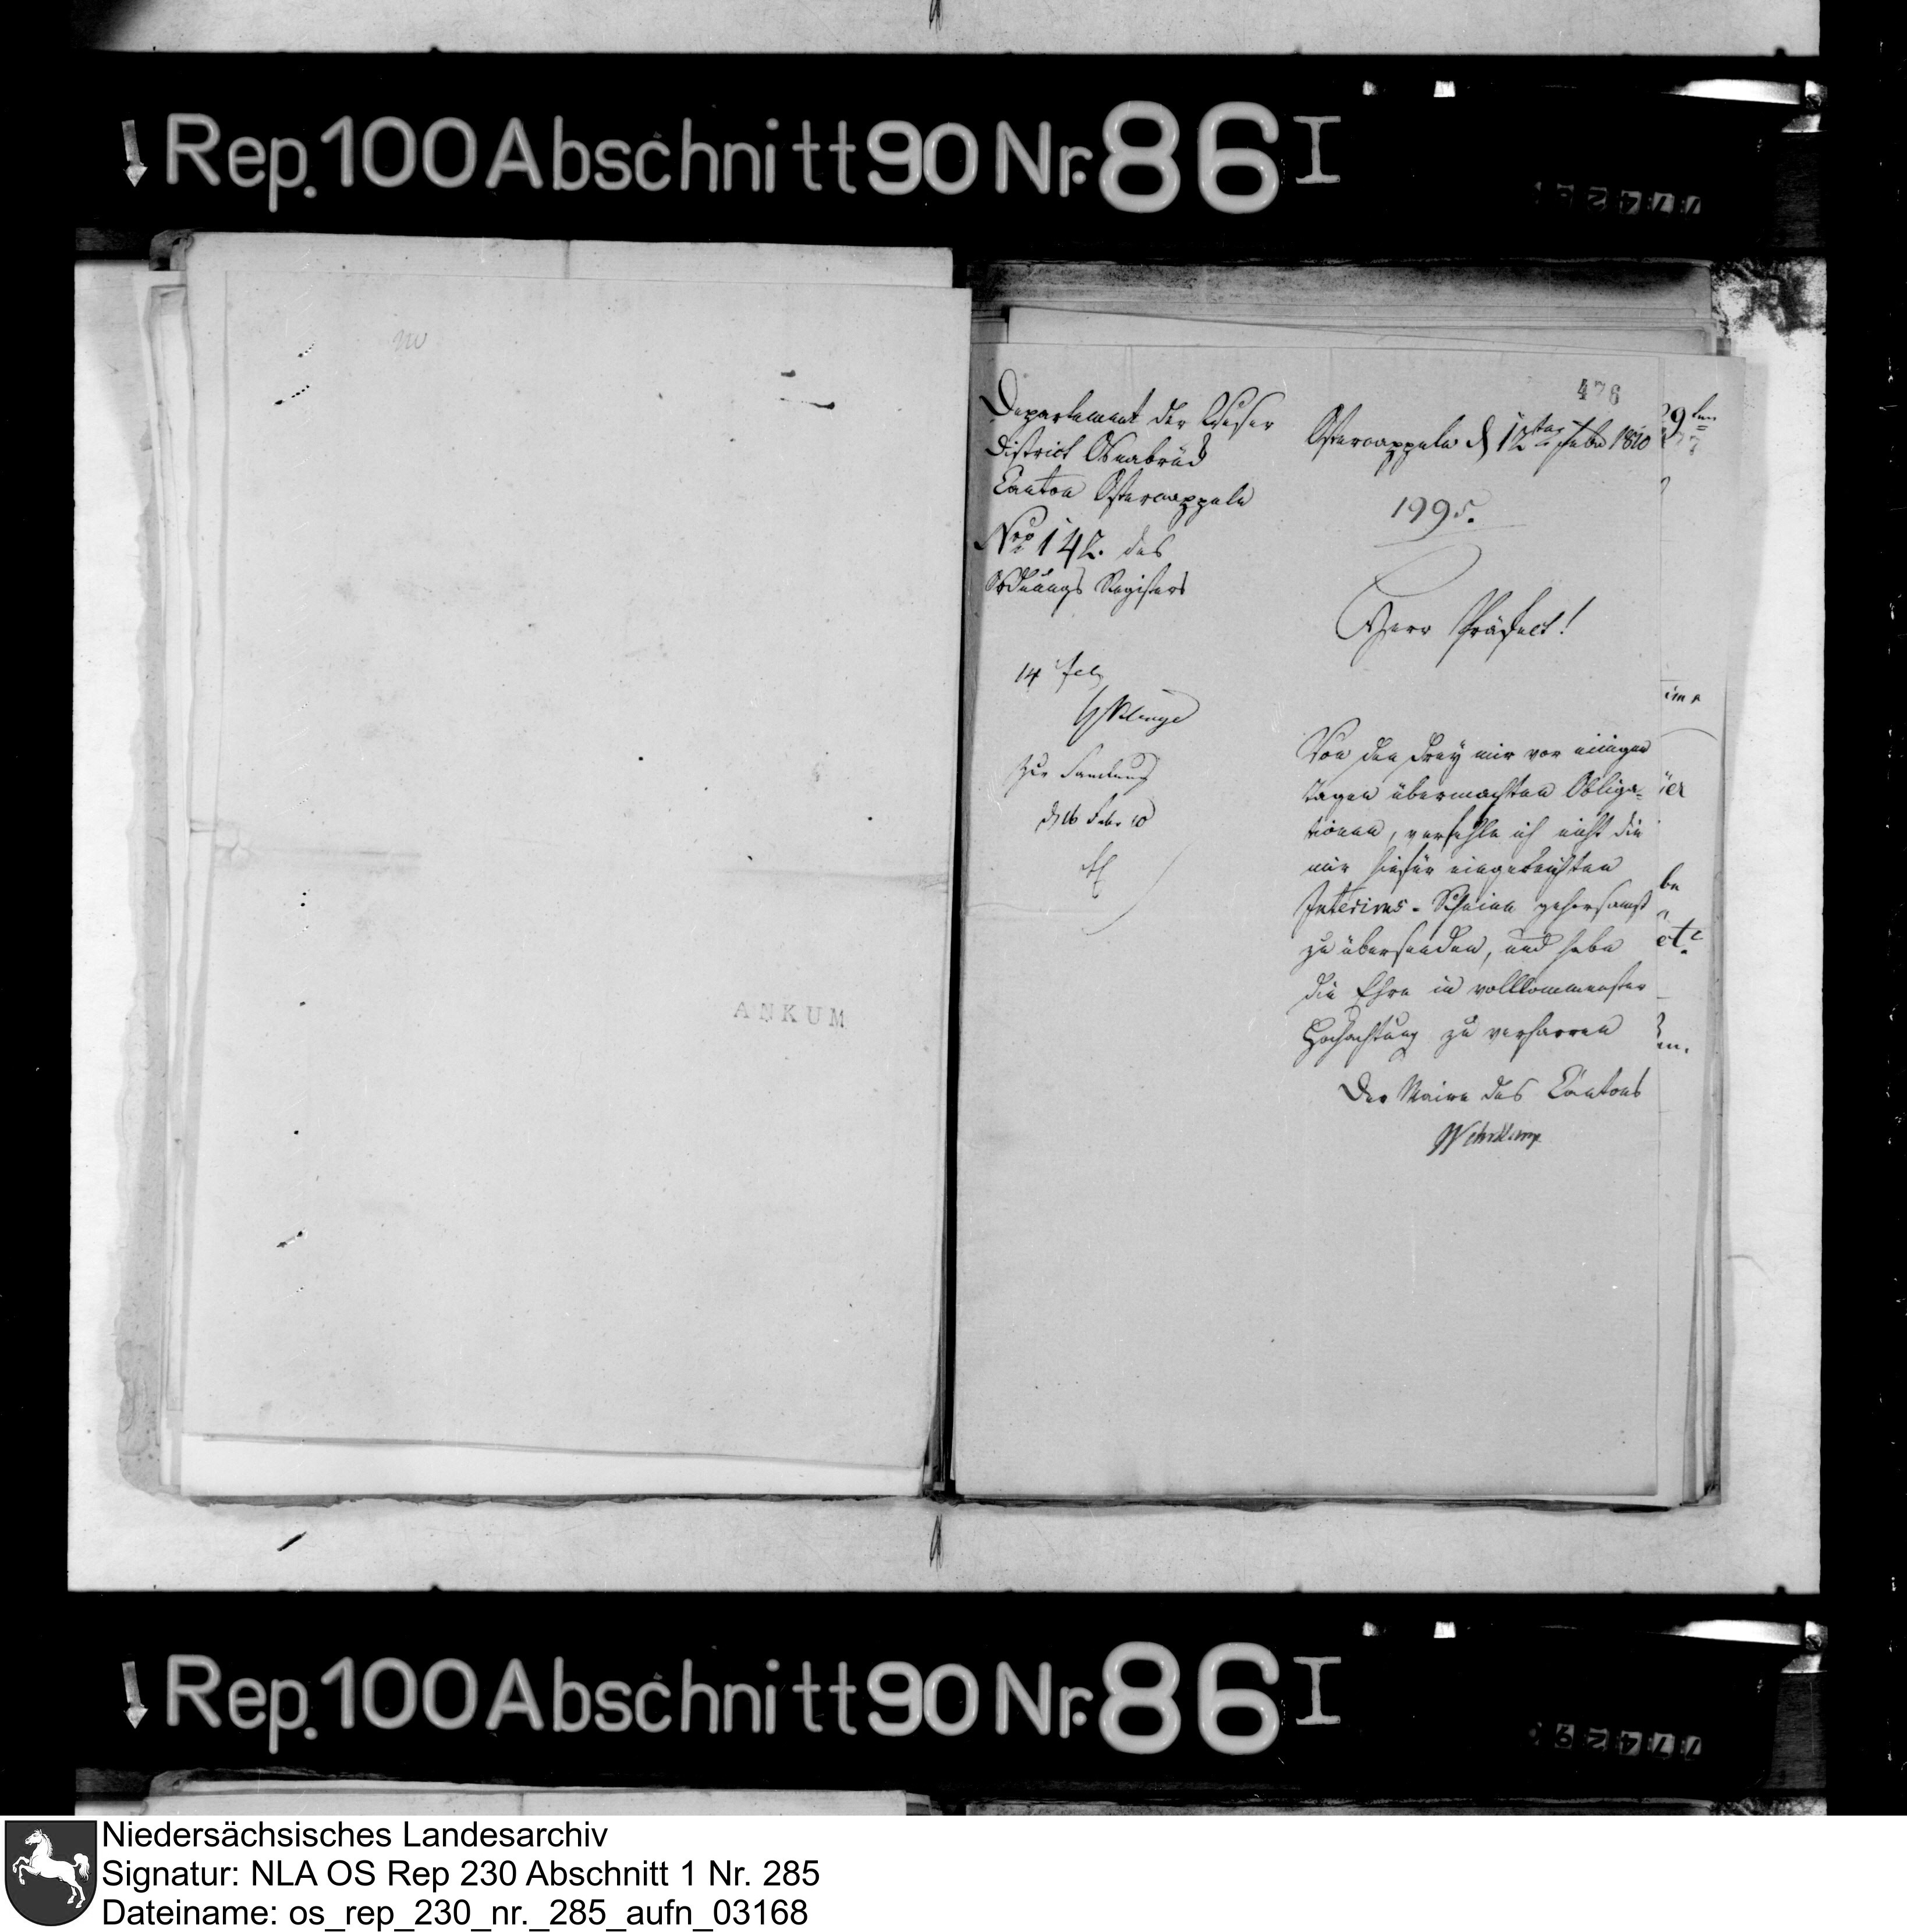 Rep. 100 Abschnitt 90 Nr. 86 I
ANKUM
476
Departement der Weser
District Osnabrück
Canton Ostercappeln
Nro 142. des
Ordnungs Registers
14 Feb
zur Samlung
d 16 Febr 10
Ostercappeln d 12ten Febr 1810
1995.
Herr Präfect!
Von den drey mir vor einigen
Tagen übermachten Obliga-
tionen, verfehle ich nicht die
mir hiefür eingereichten
Interims-Scheine gehorsamst
zu übersenden, und habe
die Ehre in vollkommenster
Hochachtung zu verharren
Der Maire des Cantons
Wehrkamp
29ten
Rep. 100 Abschnitt 90 Nr. 86 I
Niedersächsisches Landesarchiv
Signatur: NLA OS Rep 230 Abschnitt 1 Nr. 285
Dateiname: os_rep_230_nr._285_aufn_03168